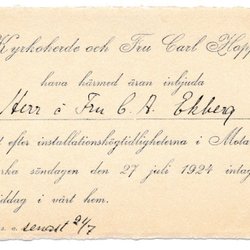 Kyrkoherde och Fru Carl Hopp
hava härmed äran inbjuda
Herr o Fru C. A. Ekberg
t efter installationshögtidligheterna i Mota
rka söndagen den 27 juli 1924 intag
iddag i vårt hem.
s. a. senast 24/7